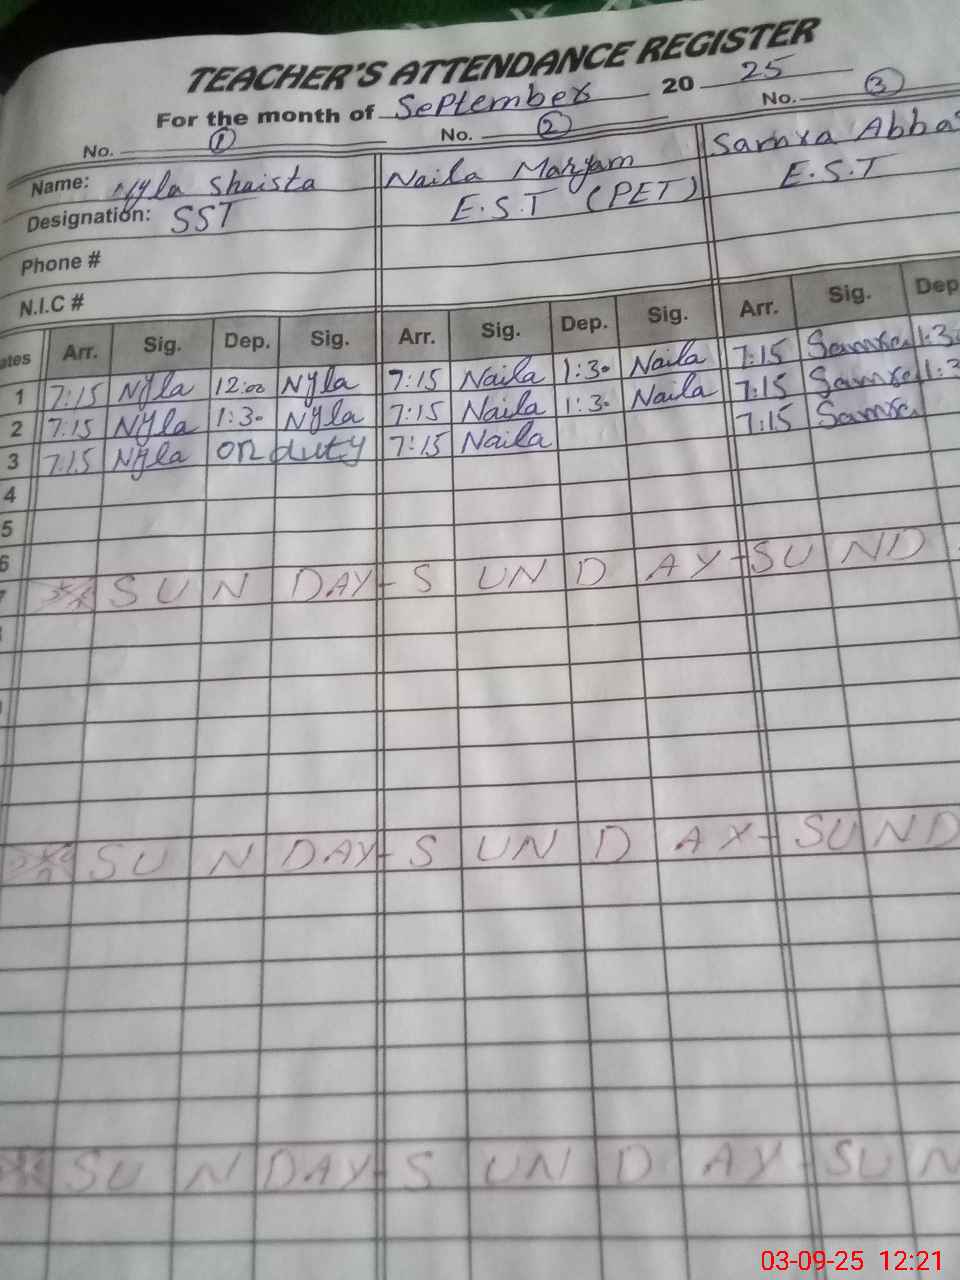 TEACHER'S ATTENDANCE REGISTER
For the month of September 20 25
No. 1 No. 2 No. 3
Name: Nyla Shaista Naila Maryam Samra Abbas
Designation: SST E.S.T (PET) E.S.T
Phone #
N.I.C #
ates Arr. Sig. Dep. Sig. Arr. Sig. Dep. Sig. Arr. Sig. Dep
1 7:15 Nyla 12:00 Nyla 7:15 Naila 1:30 Naila 7:15 Samra 1:3
2 7:15 Nyla 1:30 Nyla 7:15 Naila 1:30 Naila 7:15 Samra 1:3
3 7:15 Nyla on duty 7:15 Naila 7:15 Samra
4
5
6
7 SUNDAY-SUNDAY-SUND
SUNDAY-SUNDAY-SUND
SUNDAY-SUNDAY-SUN
03-09-25 12:21